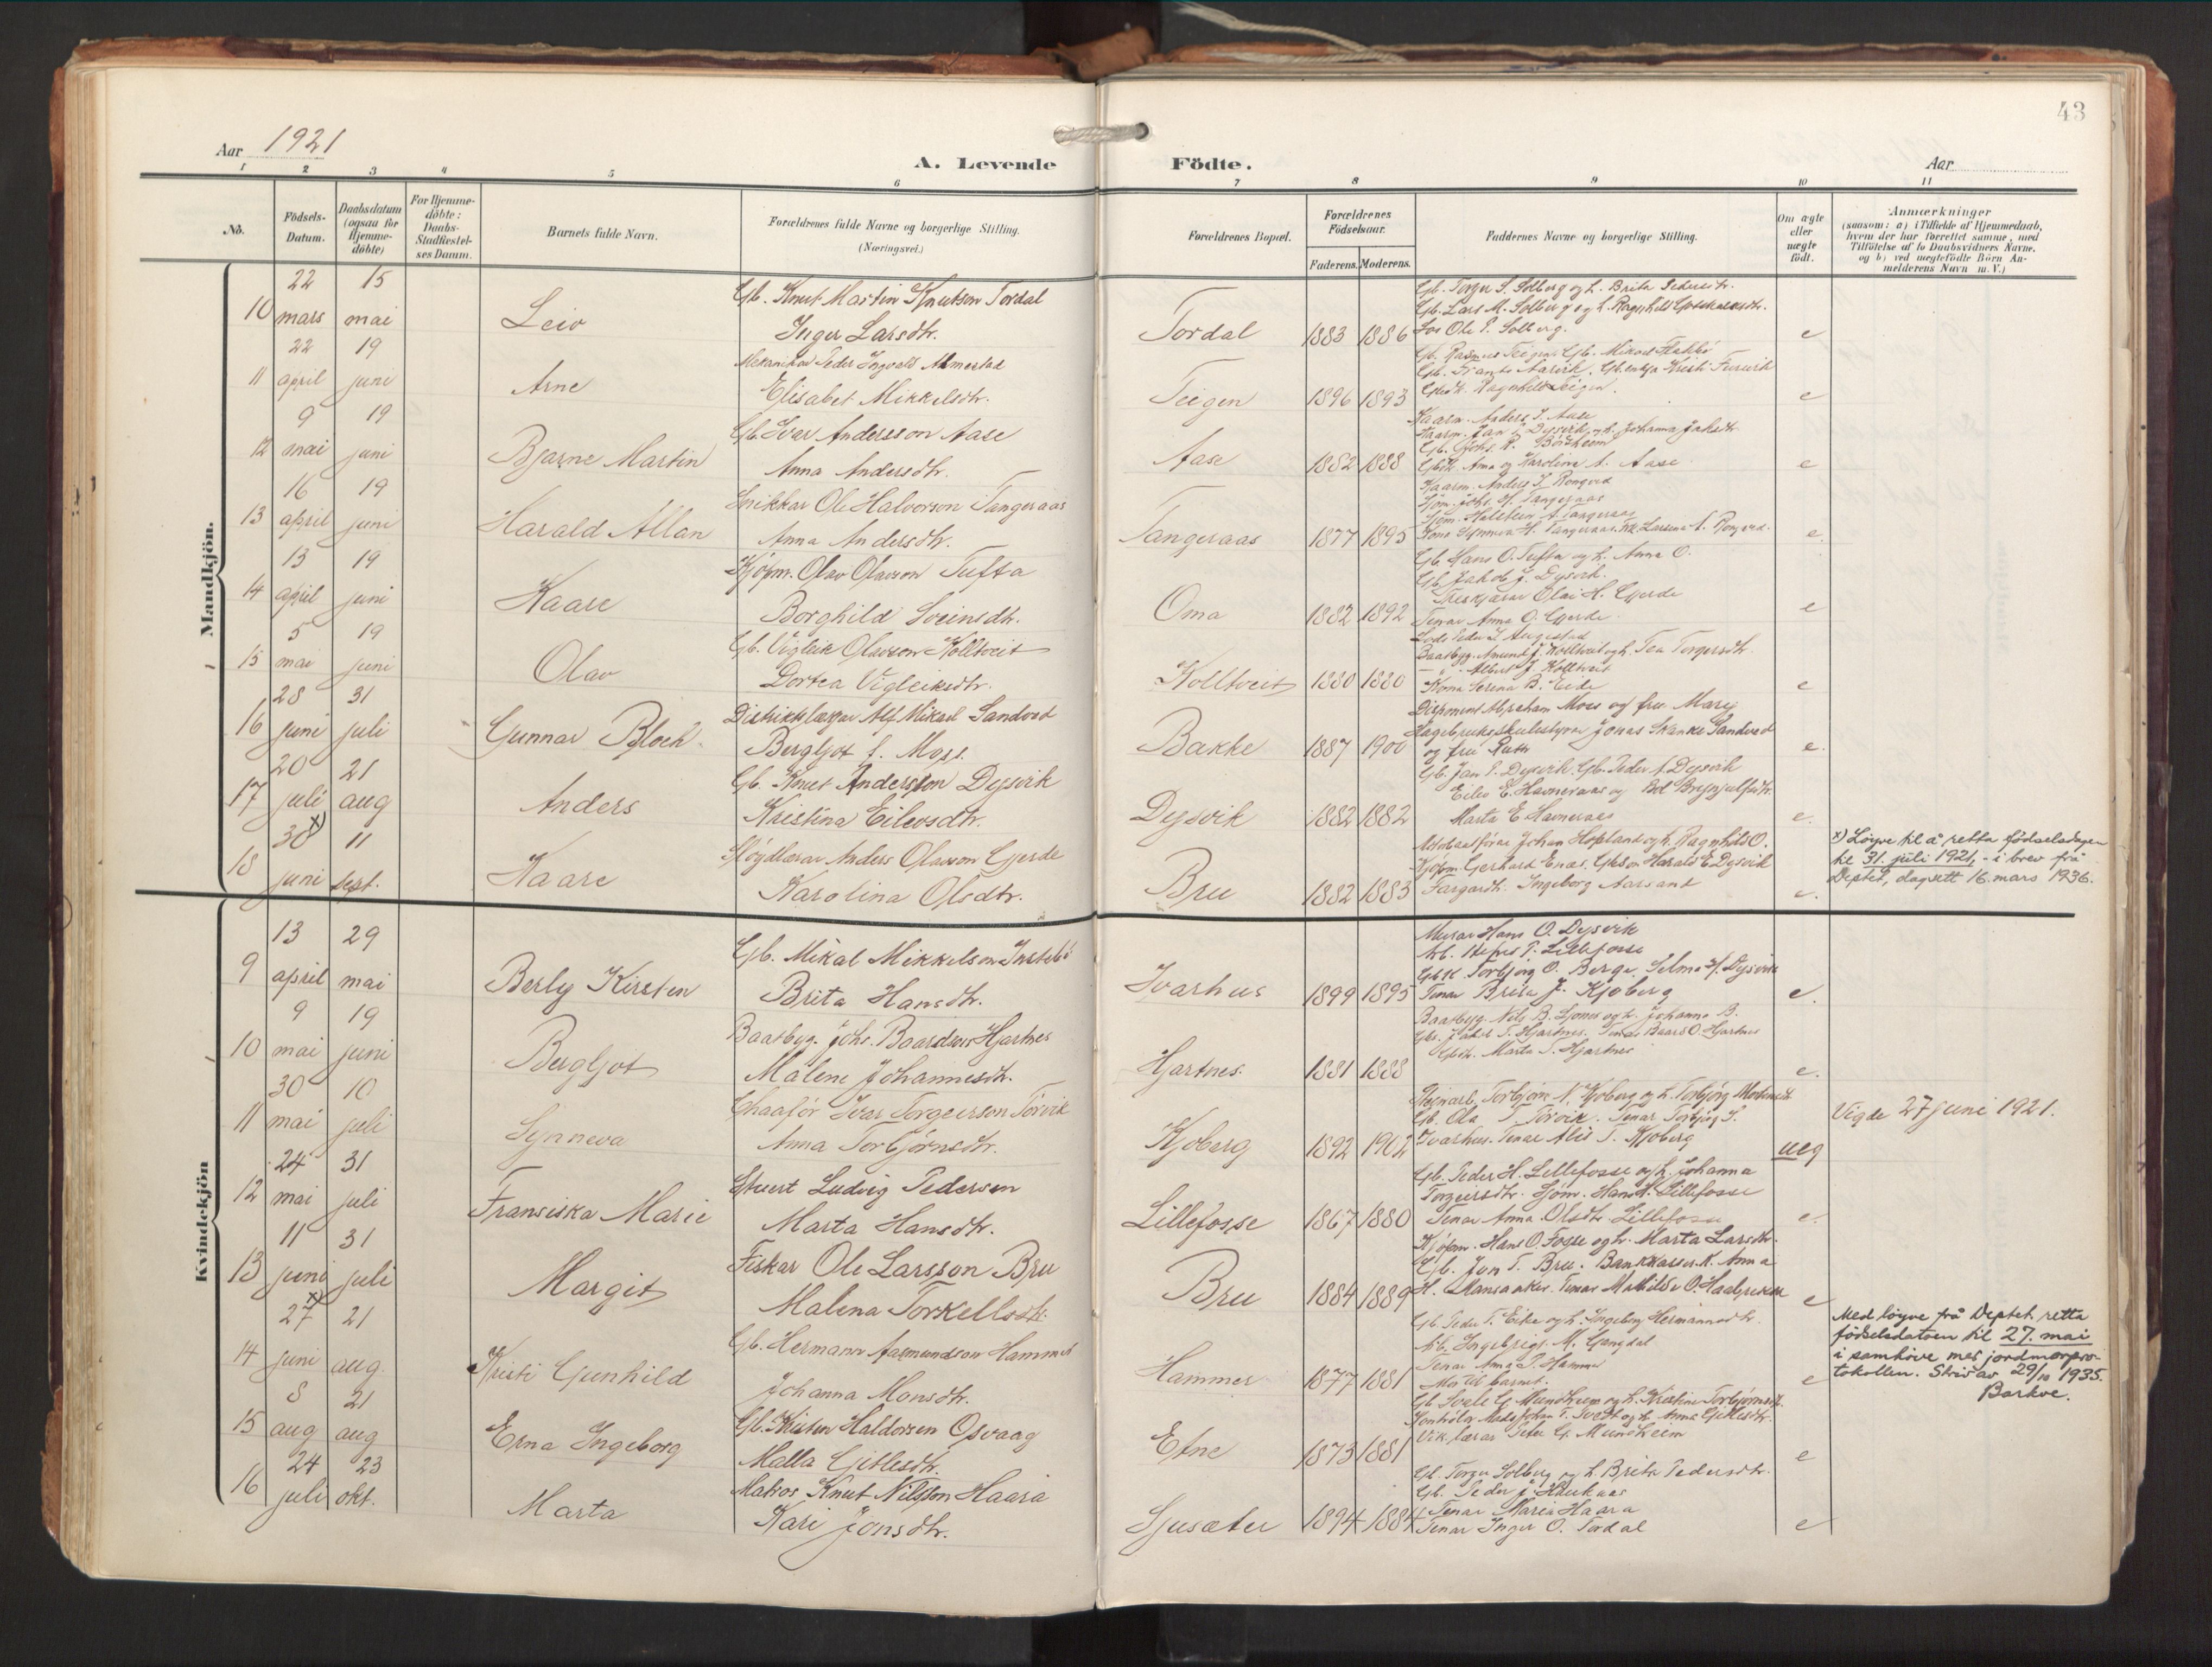 43
Aar 1921
A. Levende Födte.
Aar
1 2 3 4 5 6 7 8 9 10 11
No.
Födsels-Datum.
Daabsdatum (ogsaa for Hjemme-döbte)
For Hjemme-döbte: Daabs-Stadfæstel-ses Datum.
Barnets fulde Navn.
Forældrenes fulde Navne og borgerlige Stilling. (Næringsvei.)
Forældrenes Bopæl.
Forældrenes Födselsaar.
Faderens. Moderens.
Faddernes Navne og borgerlige Stilling.
Om ægte eller uægte födt.
Anmærkninger
(saasom: a) i Tilfælde af Hjemmedaab,
hvem der har forrettet samme, med
Tilföielse af to Daabsvidners Navne.
og b) ved uegtefödte Börn An-
melderens Navn m. V.)
Mandkjön.
10 22 mars 15 mai Leiv
Gb. Knut Martin Knutson Tordal
Inger Larsdtr.
Tordal 1883 1886
Gb. Torger S. Solberg og h. Brita Pedersdtr.
Gb. Lars M. Solberg og h. Ragnhild
Ole P. Solberg.
e
11 22 april 19 juni Arne
Mekanikar Peder Ingvald Almestad
Elisabet Mikkelsdtr.
Teigen 1896 1893
Gb. Rasmus Teigen, Gb. Mikael
Gb. Aarvik.
Ragnhild Teigen.
e
12 9 mai 19 juni Bjarne Martin
Gb. Ivar Andersson Aase
Anna Andersdtr.
Aase 1882 1888
Kaarm. Anders I. Aase
Kaarm. Jan Dysvik og h. Johanna Jakobdtr
Gb.
Anna og Karolina A. Aase
e
13 16 april 19 juni Harald Allan
Snikkar Ole Halvorson Tangeraas
Anna Andersdtr.
Tangeraas 1877 1895
Kaarm. Anders I. Rongved
Sjöm. Johs. H. Tangeraas
Sjöm. Halstein A. Tangeraas
Kona Synneva H. Tangeraas. Larsina A. Rongved.
e.
14 13 april 19 juni Kaare
Kjöpm. Olav Olavson Tufta
Borghild Sveinsdtr.
Oma 1882 1892
Gb. Hans O. Tufta og h. Anna O.
Gb. Jakob J. Dysvik.
Treskjærar Olai H. Gjerde
Tenar Anna O. Gjerde.
e
15 5 mai 19 juni Olav
Gb. Vigleik Olavson Kolltveit
Dortea Vigleiksdtr.
Kolltveit 1880 1880
Lods Peder I. Augestad
Baatbyg. Amund J. Kolltveit og h. Tea Torgersdtr.
— " - Albert J. Kolltveit
Kona Serina B. Eide
e
16 28 juni 31 juli Gunnar Bloch.
Distriktslækjar Alf Mikael Sandved
Bergljot S. Moss.
Bakke 1887 1900
Disponent Abraham Moss og fru Mary
Hagebrukskulestyrar Jonas Skanke Sandved
og fru Ruth
e.
17 20 juli 21 aug Anders
Gb. Knut Andersson Dysvik
Kristina Eilevsdtr.
Dysvik 1882 1882
Gb. Jan P. Dysvik. Gb. Peder A. Dysvik
Eilev E. Havneraas og Bol Brynjulfsdtr.
Marta E. Havneraas
e.
18 30 x) juni 11 sept. Kaare
Slöydlærar Anders Olavson Gjerde
Karolina Olsdtr.
Bru 1882 1883
Johan Hopland og h. Ragnhild O.
Kjöpm. Gerhard Enæs. Gbson Harald E. Dysvik
Fargardtr. Ingeborg Aarsand
e.
x) Løyve til å retta fødselsdagen
til 31. juli 1921, - i brev frå
Deptet, dagsett 16. mars 1936.
Kvindekjön
9 13 april 29 mai Berly Kirsten
Gb. Mikal Mikkelson Instebö
Brita Hansdtr.
Ivarhus 1899 1895
Murar Hans O. Dysvik
Arb. P. Lillefosse
Torbjörg O. Berge. Selma H. Dysvik
Tenar Brita J. Kjoberg
e.
10 9 mai 19 juni Bergljot
Baatbyg. Johs. Baardson Hjartnes
Malene Johannesdtr.
Hjartnes. 1881 1888
Baatbyg. Nils B. Ljones og h. Johanna B.
Jakob T. Hjartnes. Tenar Baard O. Hjartnes
Marta T. Hjartnes
e.
11 30 mai 10 juli Synneva
Chaaför Ivar Torgeirson Torvik
Anna Torbjörnsdtr.
Kjoberg 1892 1902
Torbjörn N. Kjoberg og h. Torbjörg
Gb. Ola T. Torvik. Tenar Torbjörg S.
Ivarhus. Tenar Alis T. Kjoberg
ueg
Vigde 27 juni 1921.
12 24 mai 31 juli Fransiska Marie
Stuert Ludvig Pedersen
Marta Hansdtr.
Lillefosse 1867 1880
Gb. Peder H. Lillefosse og h. Johanna
Torgeirsdtr. Sjöm. Hans H. Lillefosse
Tenar Anna Olsdtr Lillefosse
e.
13 11 juni 31 juli Margit
Fiskar Ole Larsson Bru
Malena Torkellsdtr.
Bru 1884 1889
Kjöpm. Hans O. Fosse og h. Marta Larsdtr.
Gb. Jon T. Bru. Bankkasser. K. Anna
H. Mansaaker. Tenar Mathilde O.
e
14 27 x) juni 21 aug. Kristi Gunhild
Gb. Hermann Aasmundson Hammer
Johanna Monsdtr.
Hammer 1877 1881
Gb. Peder T. Eike og h. Ingeborg Hermannsdtr.
Arb. Ingebrigt M. Gangdal
Tenar Anna P. Hammer
Mor til barnet.
e
Med løyve frå Deptet. retta
fødselsdatoen til 27. mai
i samhöve med jordmorpro-
tokollen. Skriv av 29/10 1935.
Barkve.
15 8 aug 21 aug Erna Ingeborg
Gb. Kristen Haldorsen Osvaag
Malla Gitlesdtr.
Etne 1873 1881
Gb Svale G. Mundheim og h. Kristine Torbjörnsdtr.
Kontrolör Mads Johan T. Tvedt og h. Anna Gitlesdtr.
Vik. lærar Peter G. Mundheim
e
16 24 juli 23 okt. Marta
Matros Knut Nilsson Haara
Kari Jonsdtr.
Sjusæter 1894 1884
Gb. Torger Solberg og h. Brita Pedersdtr.
Gb. Peder J. Haukaas
Tenar Maria Haara
Tenar Inger O. Tordal
e